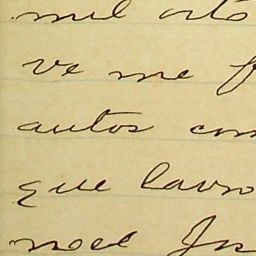 mil oito
ve me f
autos con
que lavro
noel Jo